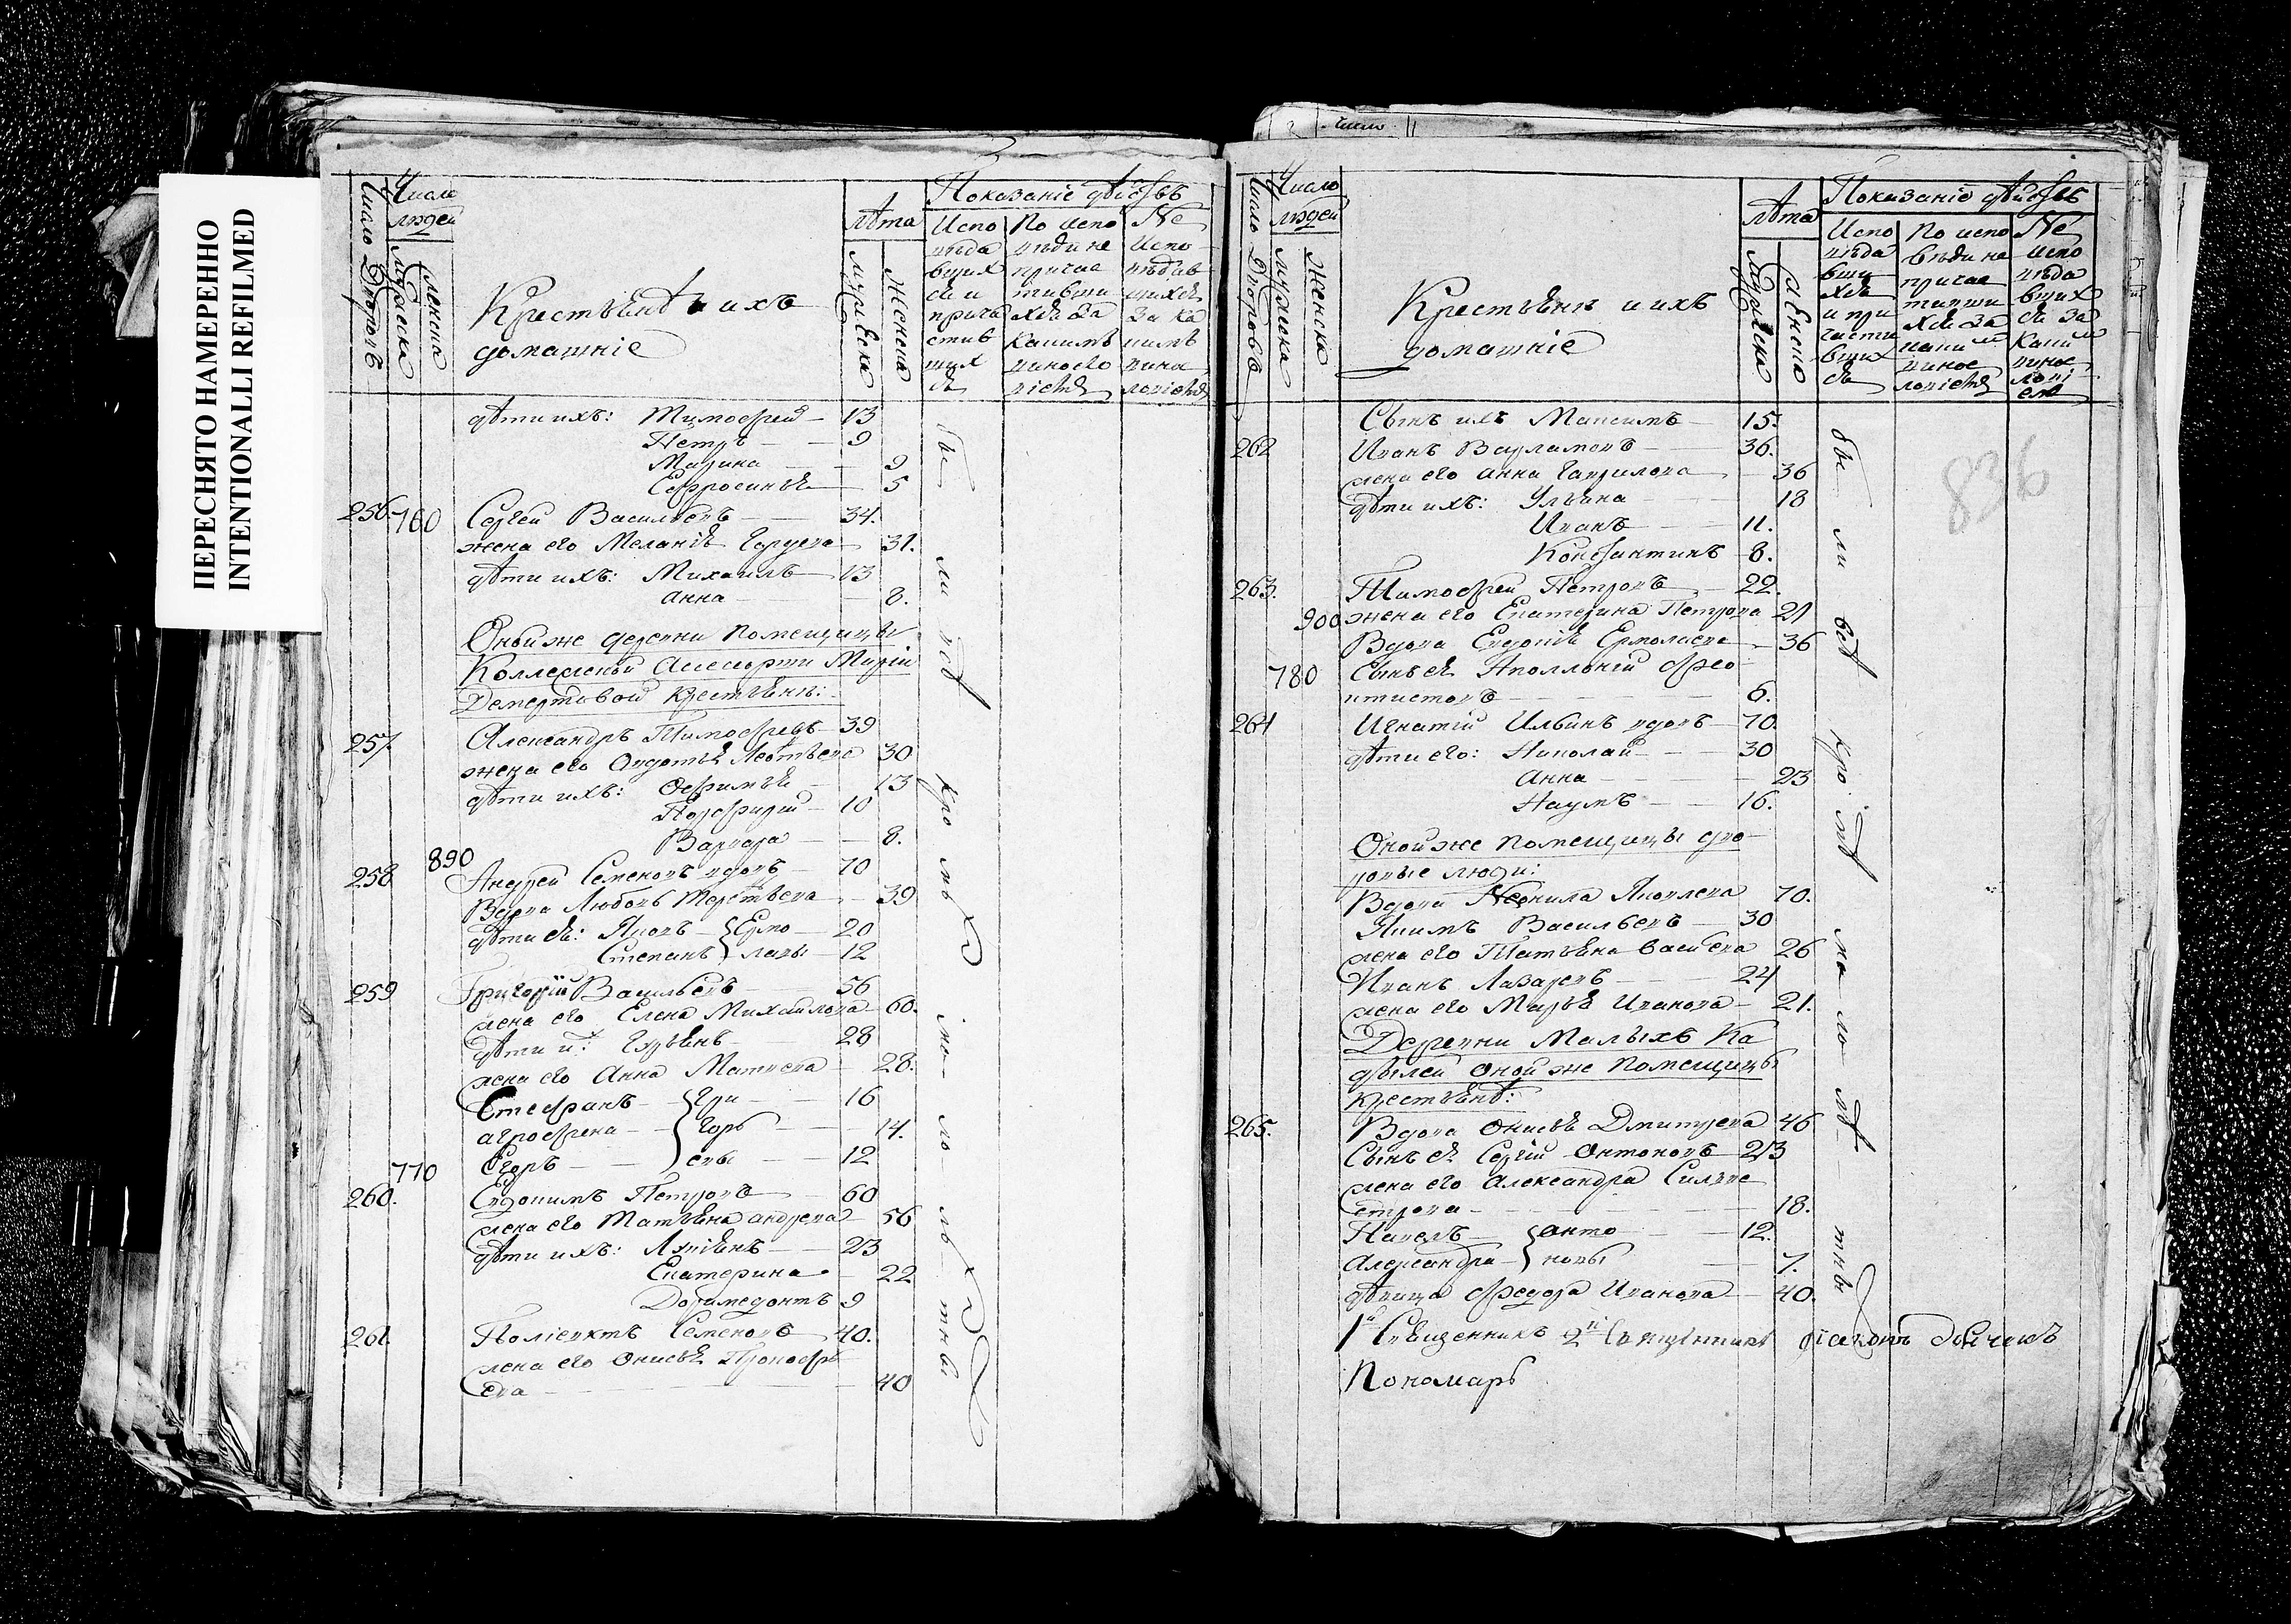 ПЕРЕСНЯТО НАМЕРЕННО
INTENTIONALLI REFILMED
Число Дворовъ
Число людей
мужеска
женска
Крестьянѣ и ихъ
домашніе
лѣта
мужеска
женска
Показаніе дѣйствъ
Исповѣдавшихся и причастившихся
По исповѣди не причастившихся За какимъ виномъ
Не Исповѣдавшихся За какимъ
дѣти ихъ: Тимофей — 13
Петръ — 9
Марина — 9
Ефросинья — 5
256. 760 Сергей Васильевъ — 34.
жена его Меланія — 31.
дѣти ихъ: Михаилъ — 13
Анна — 8.
Оной же деревни Помещицы
Коллежской Асессорши Маріи
Демертовой Крестьянѣ:
257. Александръ Тимофеевъ — 39
жена его Авдотья 30
дѣти ихъ: Офимья — 13
Порфирій — 10
Варвара — 8.
258 890 Андрей Семеновъ вдовъ — 70
Вдова Любовь — 39
дѣти ея: Яковъ — Ермо — 20
Степанъ лавы — 12
259 Григорій Васильевъ — 56
жена его Елена Михайлова — 60.
дѣти их: — 28
жена его Анна Матвева — 28.
Стефанъ — Гри — 16
Агрофена — горь — 14.
770 Егоръ — евы — 12
260. Евдокимъ Петровъ 60
жена его Татьяна Андрева — 56
дѣти ихъ: — 23
Екатерина — 22
Доримедонтъ 9
261. Поліевктъ Семеновъ — 40.
жена его Онисья Прокофь
ева — 40
Число Дворовъ
Число людей
мужеска
женска
Крестьянѣ и ихъ
домашніе
лѣта
мужеска
женска
Показаніе дѣйствъ
Исповѣдавшихся и причастившихся
По исповѣди не причастившихся За какимъ
Не Исповѣдавшихся За какимъ
836
Сынъ ихъ Максимъ — 15.
262 Иванъ Варламовъ — 36.
жена его Анна Гаврилова 36
дѣти ихъ: Ульяна — 18
Иванъ — 11.
Константинъ — 8.
263. Тимофей Петровъ — 22.
900 жена его Екатерина Петрова 21
Вдова Евдокія Ермолаева — 36
780 Сынъ ея Аполлоній Фео
ктистовъ — 6.
264 Игнатій Ильинъ вдовъ — 70.
дѣти его: Николай — 30
Анна — 23
Наумъ — 16.
Оной же Помещицы дво
ровые люди:
Вдова Неонила Яковлева 70.
Якимъ Васильевъ — 30
жена его Татьяна 26
Иванъ Лазаревъ — 24
жена его Марья Иванова — 21.
Деревни Малыхъ Ка
былей Оной же Помещицы
крестьянѣ:
265. Вдова Онисья Дмитрева 46
Сынъ ея Сергій Онтоновъ — 23
жена его Александра Сильве
строва — 18.
Павелъ — Анто — 12.
Александра — новы — 7.
дѣвица Федора Иванова — 40.
1й Священникъ 2й Священникъ Діаконъ Дьячекъ
Пономарь